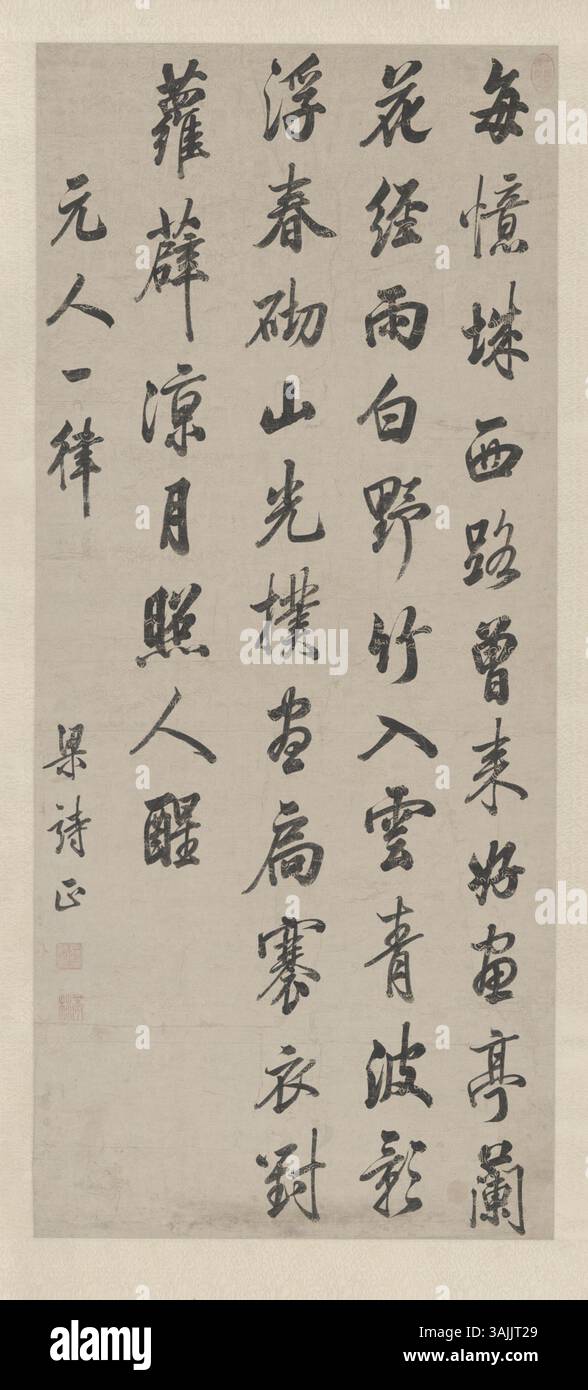 每憶城西路曾來好畫亭蘭
花經雨白野竹入雲青波影
浮春砌山光撲畫扃褰衣對
蘿薜涼月照人醒
元人一律
梁詩正
alamy
Image ID: 2AJJT29
www.alamy.com